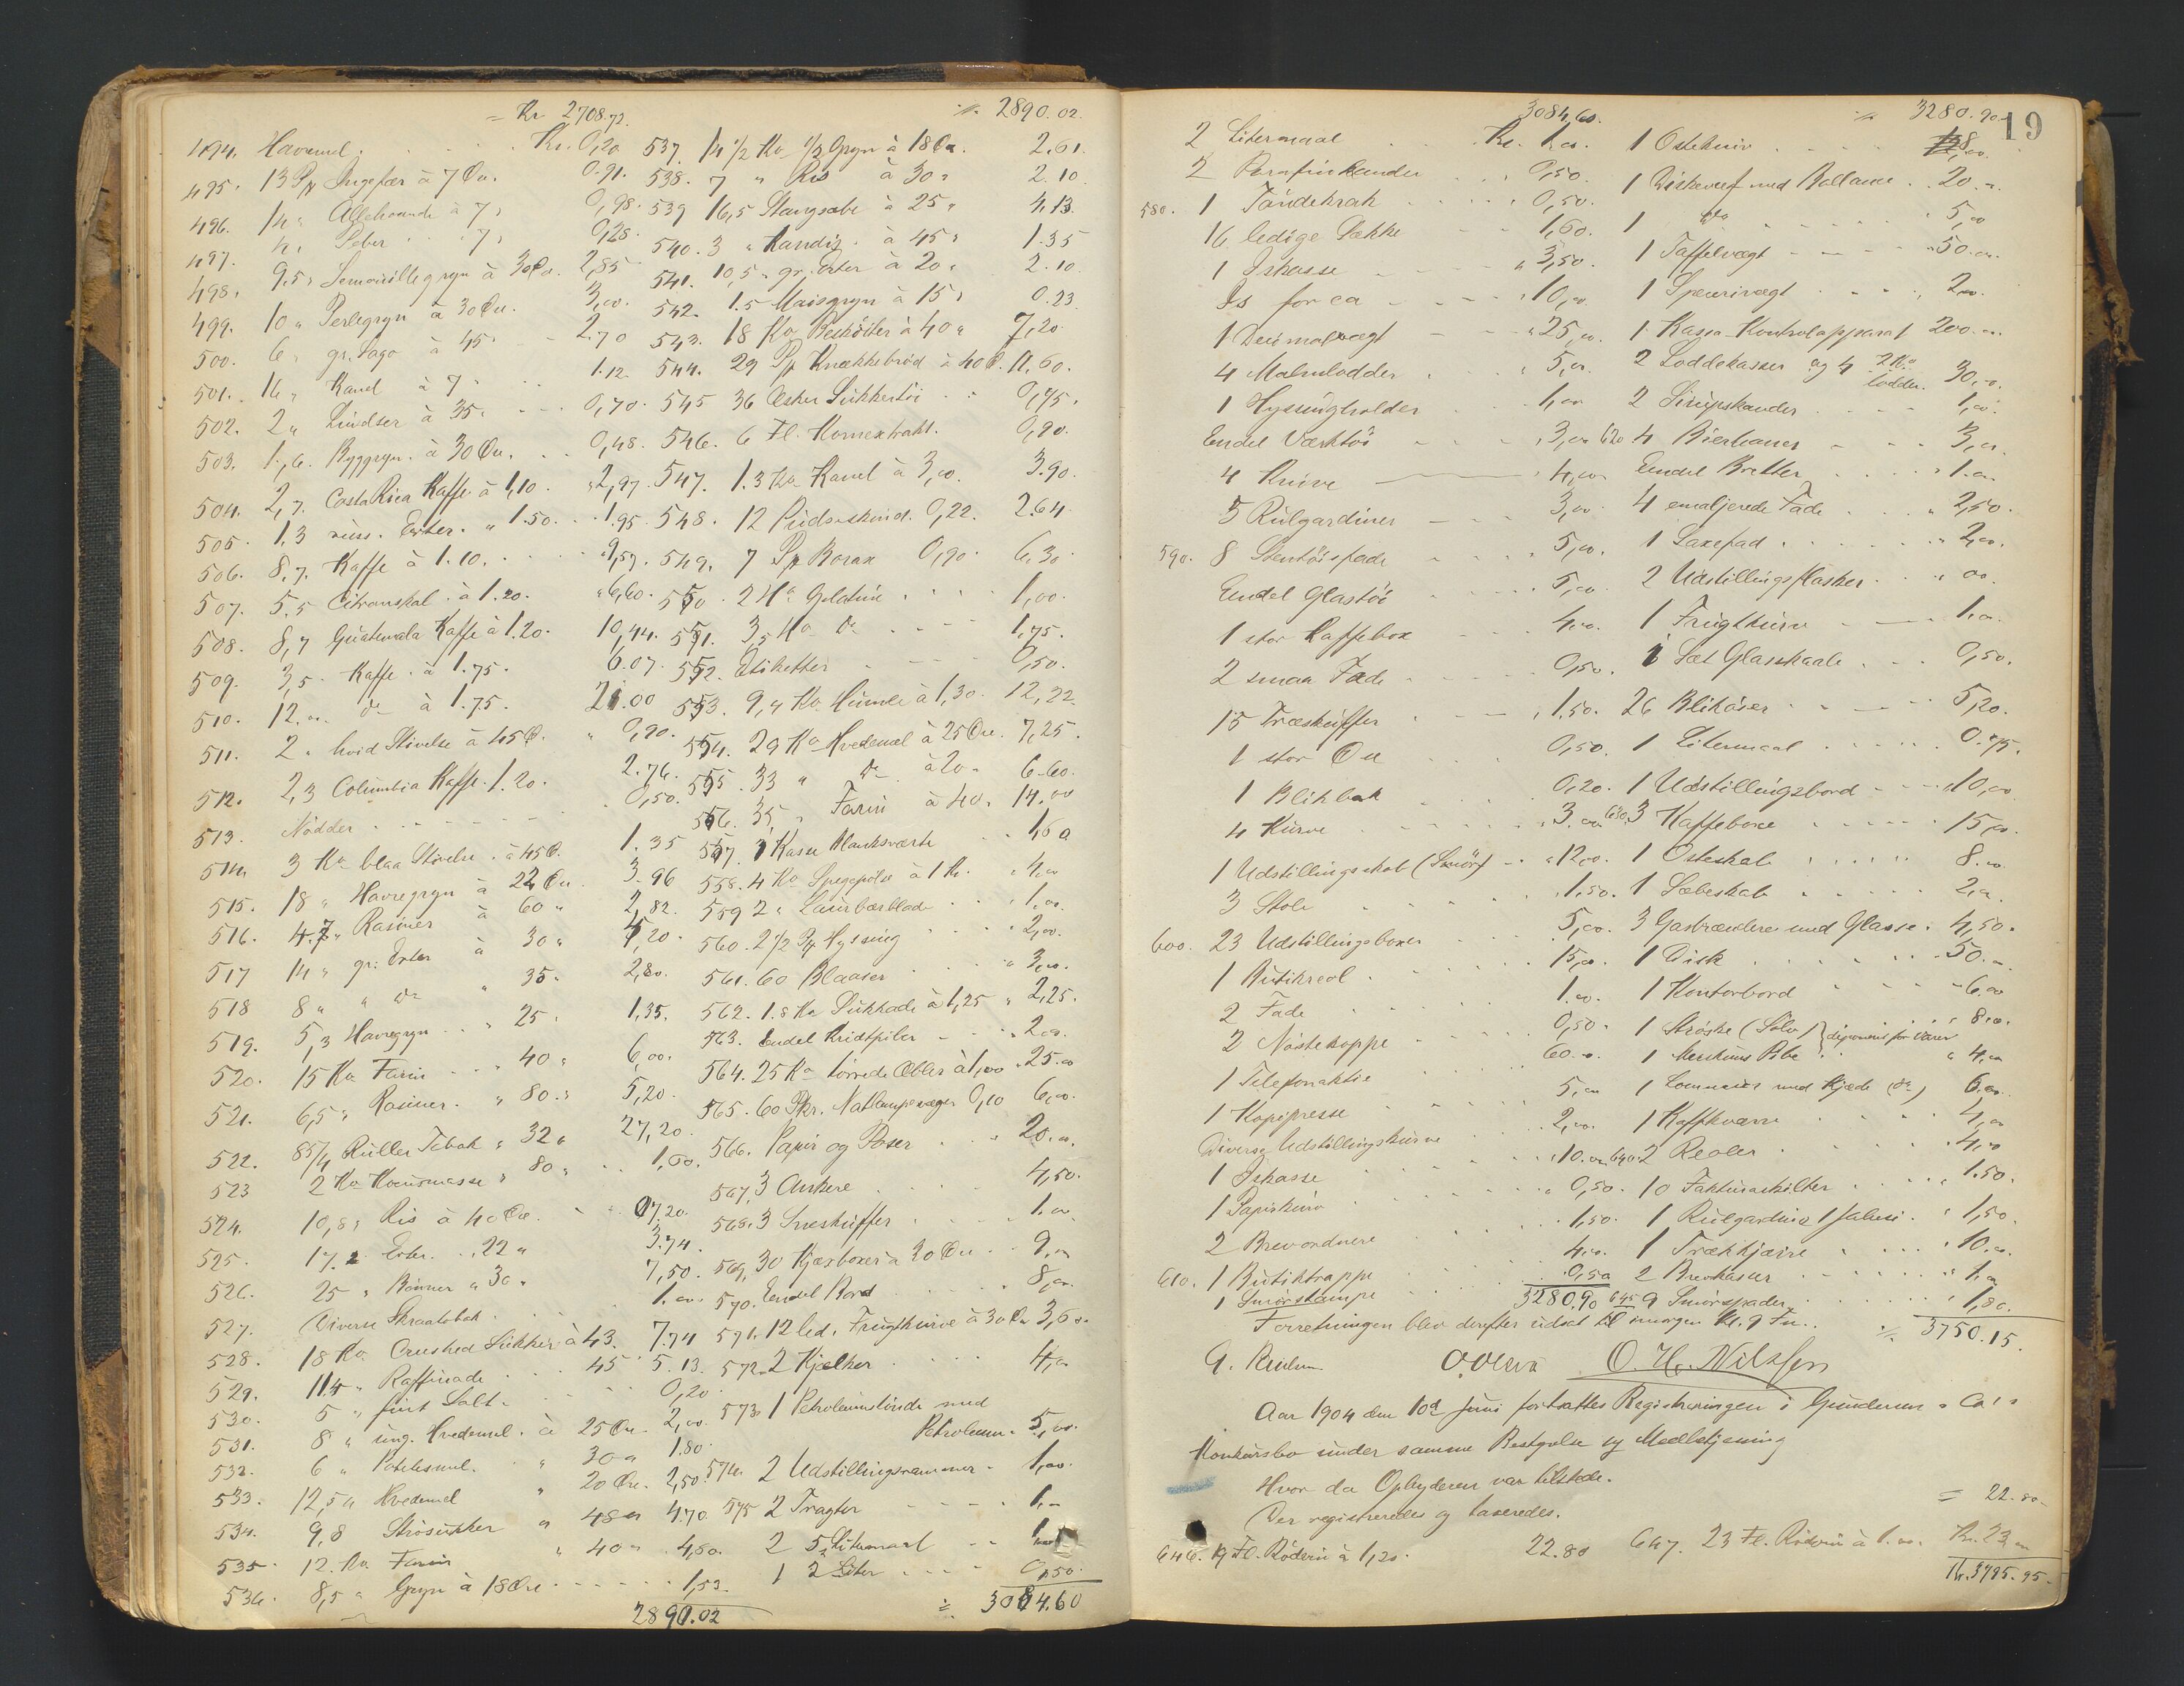 = Kr. 2708.72.
494. Havremel . . . Kr. 0,20
495. 13 Pk Ingefær à 7 Øre. 0.91.
496. 14 " Allehaande à 7 " 0,98.
497. 4 " Peber . . 7 " 0,28.
498. 9.5 " Semouillegryn à 30 Øre. 2,85
499. 10 " Perlegryn à 30 Øre. 3,00.
500. 6 " gr. Sago à 45 " 2.70
501. 16 " Kanel à 7 " 1.12.
502. 2 " Lindser à 35 " 0,70.
503. 1,6 Byggryn. à 30 Øre. 0,48.
504. 2,7. Costa Rica Kaffe à 1,10. " 2,97.
505. 1.3 russ. Erter. " 1.50. 1.95
506. 8.7. Kaffe à 1.10. " 9,57.
507. 5.5 Citronskal. à 1.20. " 6,60.
508. 8,7 Guatemala Kaffe à 1.20. 10,44.
509. 3,5. Kaffe. à 1.75. 6.07.
510. 12.00 do à 1.75. 21.00
511. 2 " hvid Stivelse à 45 Ø. " 0,90.
512. 2,3 Columbia Kaffe. 1.20. 2.76.
513. Nødder . . . 0,50.
514. 3 Ko blaa Stivelse. à 45 Ø. 1.35
515. 18 " Havregryn à 22 Øre. 3.96
516. 4.7 " Rasiner à 60 " 2,82.
517 14 " gr. Erter à 30 " 4,20.
518 8 " " do " 35 " 2,80.
519. 5,3 Havregryn . . " 25 " 1.35.
520. 15 Ko Farin . . " 40 " 6,00.
521. 6,5 " Rasiner. " 80 " 5,20.
522. 85/4 Ruller Tobak " 32 " 27,20.
523 2 Ko Kokusmasse " 80 " 1,60.
524. 10,8 " Ris à 40 Øre. 
525. 17.2 Erter. . 22 " 3.74.
526. 25 " Bønner " 30 " 7,50.
527. Diverse Skraatobak. 1.00.
528. 18 Ko Crushed Sukker à 43. 7.74
529. 11.4 " Raffinade . . 45 5.13.
530. 5 " fint Salt. 0,20.
531. 8 " ung. Hvedemel. à 25 Øre. 2,00.
532. 6 " Potetesmel. " 30 " 1.80.
533. 12,5 " Hvedemel " 20 Øre. 2,50.
534. 9,8 Strösukker " 48 " 4.70
535. 12. Ko Farin " 40 " 4,80.
536. 8,5 " Gryn à 18 Øre . . . 1,53.
2890.02
./. 2890.02.
537. 14 1/2 Ko 1/2 Gryn à 18 Øre. 2.61.
538. 7 " Ris à 30 " 2.10
539 16,5 Stangsæbe à 25 " 4.13.
540. 3 " Kandis. à 45 " 1.35
541. 10,5 " gr. Erter à 20 " 2.10
542. 1.5 Maisgryn à 15 " 0.23
543. 18 Ko à 40 " 7,20.
544. 29 Pk Knækkebrød à 40 Ø. 11,60.
545 36 Æsker Sukkertöi . . 0,75.
546. 6 Fl. Kornextrakt. 0,90.
547. 1.3 Ko Kanel à 3,00. 3.90.
548. 12 Pudseskind. 0,22. 2.64.
549. 7 Pk Borax 0,90. 6,30.
550. 2 Ho Gelatine . . . 1,00.
551. 3,5 Ho do . . . 1,75.
552. Etiketter . . . 0,50.
553. 9,4 Ko Humle à 1,30. 12,22.
554. 29 Ko Hvedemel à 25 Øre. 7,25.
555. 33 " do à 20 " 6.60.
556. 35 " Farin à 40 " 14.00
557. 1 Kasse Blanksværte . . 1,60
558. 4 Ko Spegepølse à 1 Kr. " 4,00
559 2 " Laurbærblade . . 1.00.
560. 2 1/2 Pk Hyssing . . 2,00.
561. 60 Blaaser . . " 3,00.
562. 1.8 Ko Sukkade à 1,25 " 2,25.
563. Endel Kridtpiber . . . 2,00.
564. 25 Ko tørrede Æbler à 1,00 " 25.00
565. 60 Pkr. Natlampevæger 0,10 6,00.
566. Papir og Poser . . . 20.00.
567. 3 Ankere . . . 4,50.
568. 3 Sneskuffer . . . 1.00
569. 30 Kjæxboxer à 30 Øre . . 9.00
570. Endel Bord . . . 8,00.
571. 12 led. Frugtkurve à 30 Øre 3,60.
572. 2 Kjelker . . . 4,00
573. 1 Petroleumstønde med
Petroleum. 5,00.
574. 2 Udstillingsrammer . 1,00.
575 2 Tragter . . . 1,00
2 5 Litermaal . . 
1 2 Liter . . . 0,50.
./. 3084.60
19
3084,60.
2 Litermaal . . . Kr. 1,00.
2 Parafinkander . . 0,50.
580. 1 Töndekrak . . . 0,50.
16 ledige Sække . . 1,60.
1 Iskasse . . . " 3,50.
Is for ca . . . " 10,00.
1 Decimalvægt . . " 25,00.
4 Malmlodder . . " 5,00.
1 Hyssingholder . . 1,00
Endel Værktöi . . " 3,00
4 Knive . . . " 4,00
5 Rulgardiner . . . 3,00.
590. 8 Stentöisfade . . . 5,00.
Endel Glastöi . . . 5,00.
1 stor Kaffebox . . . 4.00.
2 smaa Fade . . . 0,50.
15 Træskuffer . . " 1.50.
1 stor Du . . . 0,50.
1 Blikbak . . . 0,20.
4 Kurve . . . " 3.00
1 Udstillingsskab (Smör) . . " 12,00.
3 Stole . . . 1,50.
600. 23 Udstillingsboxer . . . 5,00.
1 Butikreol . . . 15,00.
2 Fade . . . 1.00.
2 Nöstekoppe . . . 0,50.
1 Telefonaktie . . . 60.00.
1 Kopipresse . . . 5,00
Diverse Udstillingskurve . . 2,00.
1 Iskasse . . . " 10.00
1 Papirkurv . . . " 0,50.
2 Brevordnere . . . 1,50.
610. 1 Butiktrappe . . . 4.00.
1 Smörstampe . . . 0,50
3280.90
./. 3280.90
1 Ostekniv . . . 8,00.
1 Diskevægt med Ballance . . 20.00.
1 do . . . 5,00
1 Taffelvægt . . . " 50.00.
1 Specerivægt . . . " 2,00.
1 Kassa-Kontrolapparat 200.00.
2 Loddekasser og 4 2 Ko
lodder. 30,00.
2 Sirupskander . . . 1,00.
620 4 Bierhaner . . 3,00.
Endel Bretter . . . " 1.00
4 emaljerede Fade . . . " 2,50.
1 Laxefad . . . " 2,00.
2 Udstillingsflasker . . " 00.
1 Frugtkurv . . . 1.00.
1 Sæt Glasskaale . . . 0,50.
26 Blikdåser . . . 5,20.
1 Litermaal . . . 0.75.
1 Udstillingsbord . . . " 10,00
630. 3 Kaffeboxe . . . 15,00.
1 Osteskab . . . 8.00
1 Sæbeskab . . . 2,00.
3 Gasbrændere med Glasse. 4,50.
1 Disk . . . 50.00
1 Kontorbord . . . 6.00
1 Ströske (Sölv) } deponeret for Varer . . 8.00.
1 Merskums Pibe " 4.00
1 Lommeur med Kjæde (do) 6.00.
1 Kaffekværn . . . 4,00
640. 2 Reoler . . . 4,00
10 Fakturaskilter . . . 1.50.
1 Rulgardin & 1 Jalusi. " 1,50.
1 Trækkjærre . . . " 10.00.
2 Brevkasser . . . 1.00
645 9 Smörspader . . . 1,80.
./. 3750.15.
Forretningen blev derefter udsat til imorgen Kl. 9 Fm.
O. H. Nilssen
Aar 1904 den 10de Juni fortsattes Registreringen i Gundersen & Co's
Konkursbo under samme Bestyrelse og Medbetjening
Hvor da Opbyderen var tilstede.
Der registreredes og taxeredes.
= 22.80.
646. 19 Fl. Rödvin à 1,20. 22.80
647. 23 Fl. Rödvin à 1.00. Kr. 23.00
Kr. 3795.95.